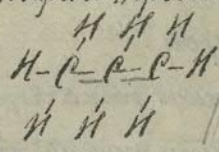 H H H
H-C=C=C-H
H H H